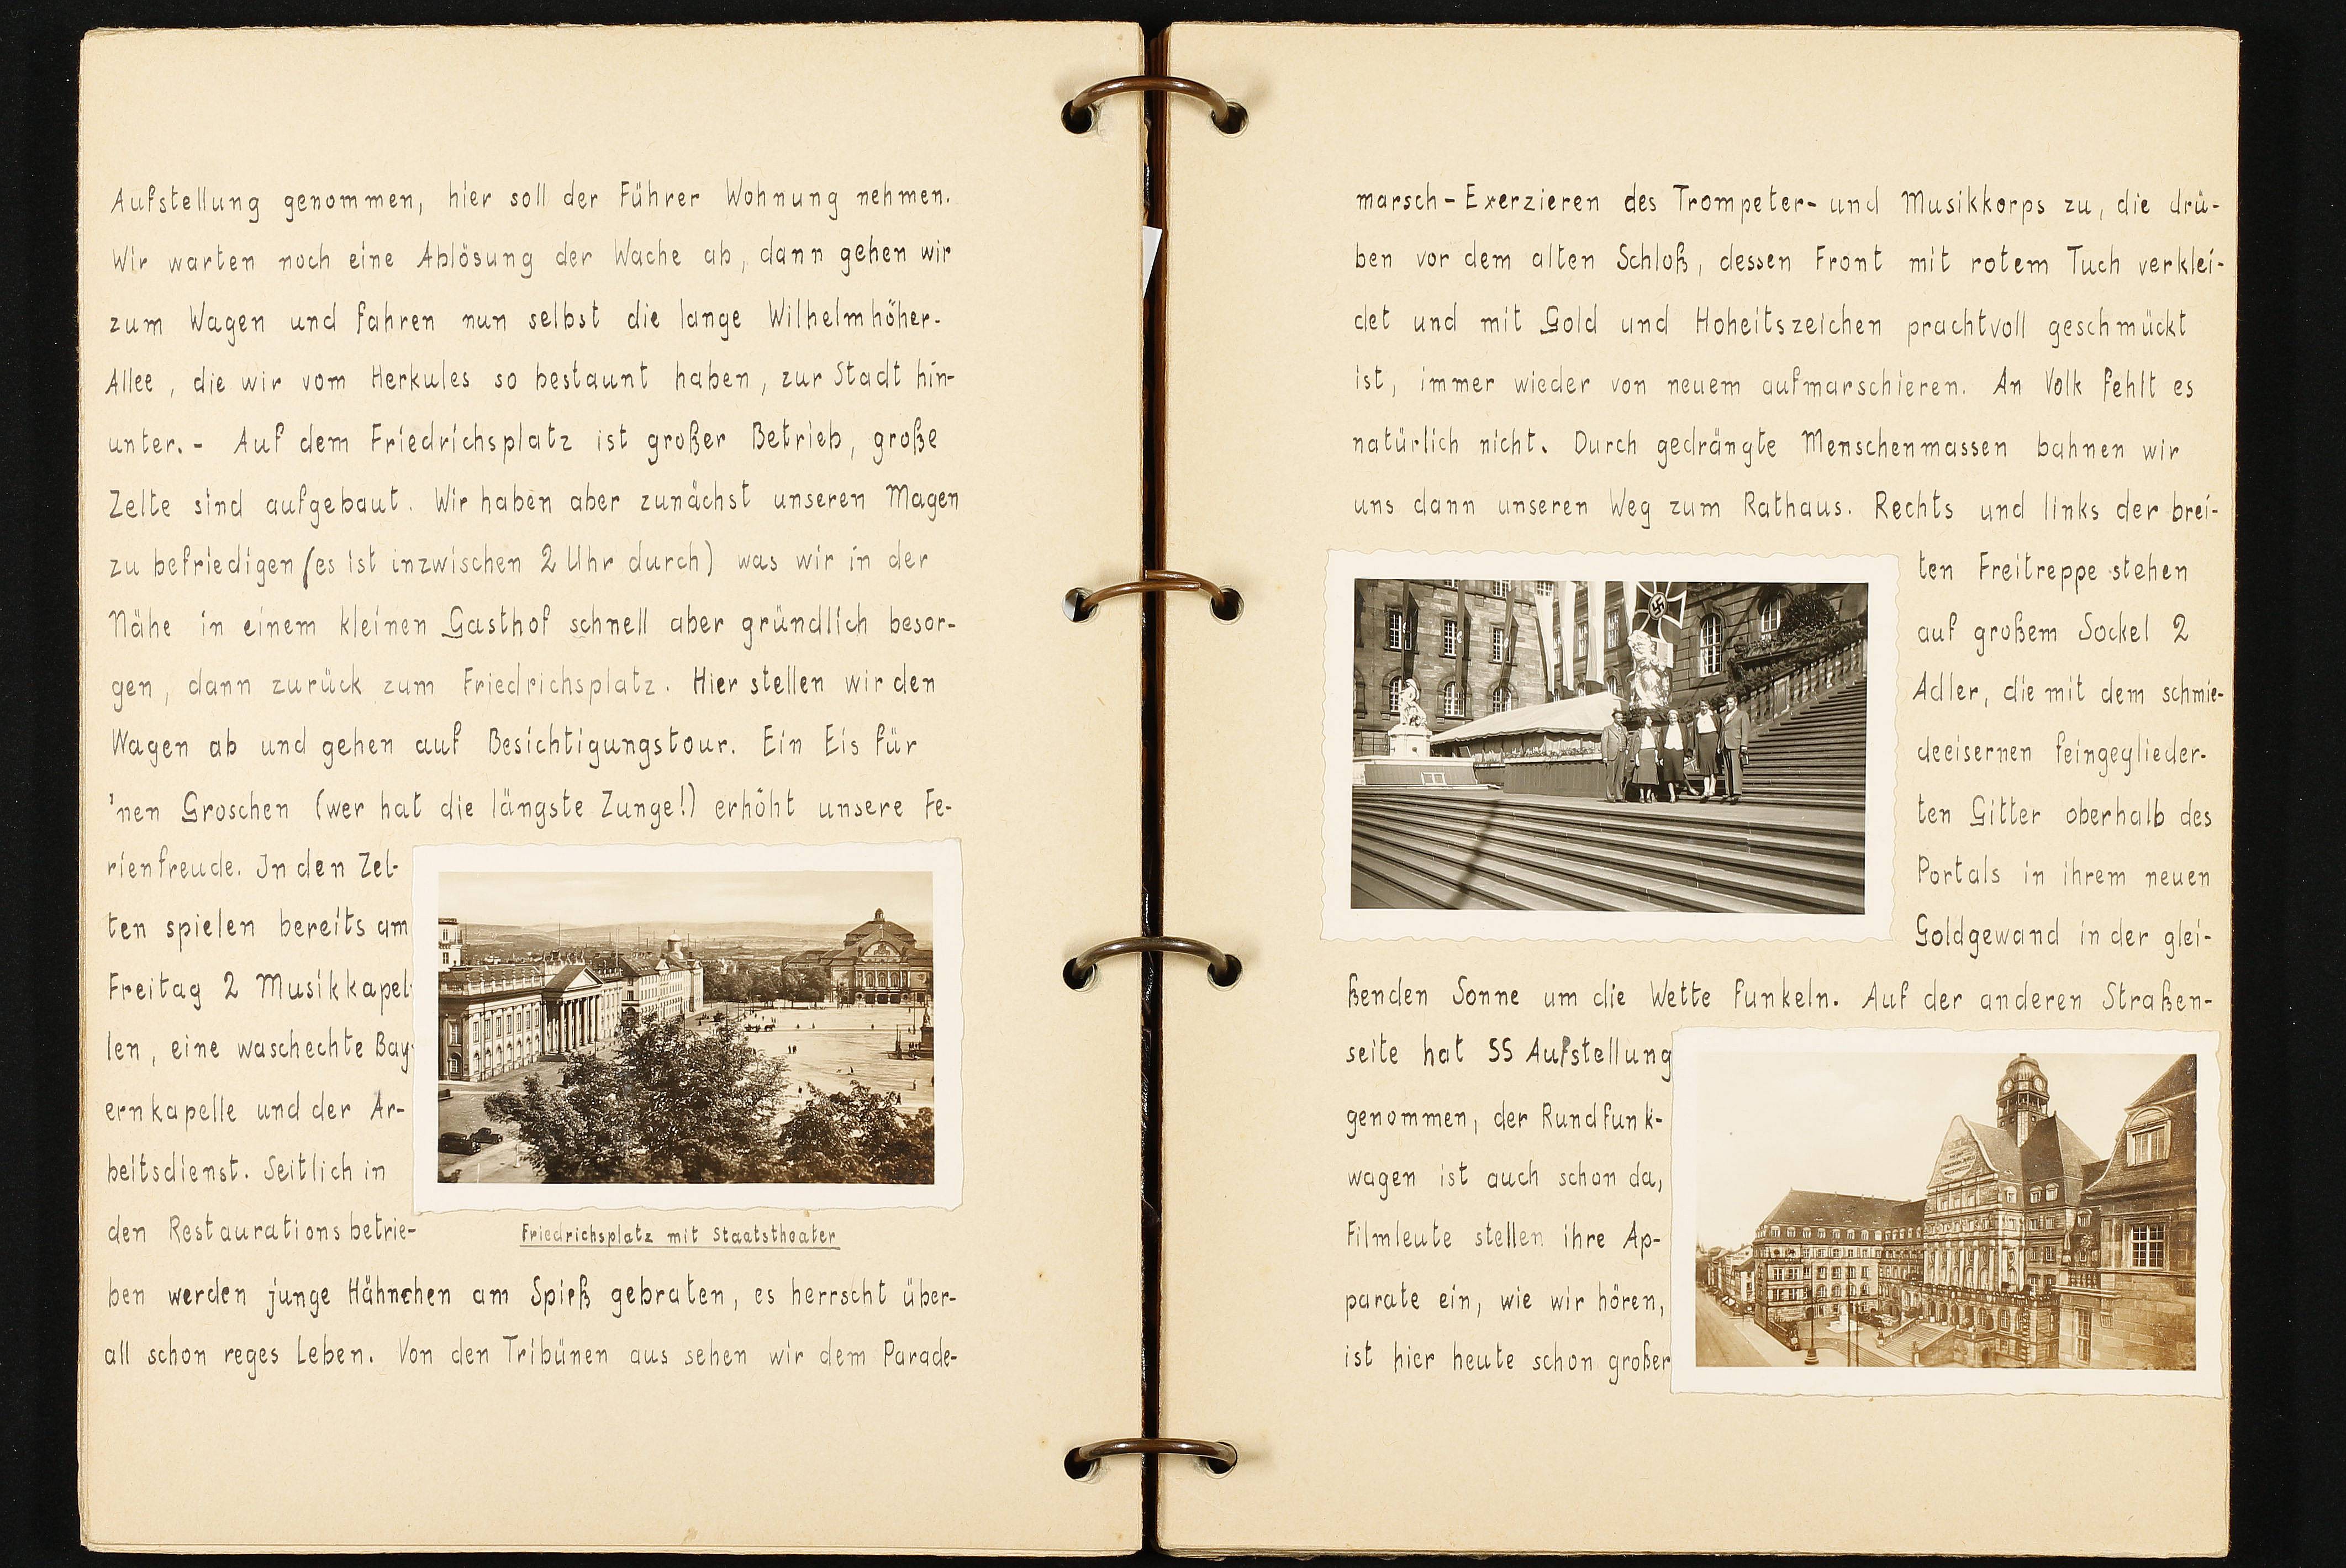 Aufstellung genommen, hier soll der Führer Wohnung nehmen.
Wir warten noch eine Ablösung der Wache ab, dann gehen wir
zum Wagen und fahren nun selbst die lange Wilhelmhöher-
Allee, die wir vom Herkules so bestaunt haben, zur Stadt hin-
unter. - Auf dem Friedrichsplatz ist großer Betrieb, große
Zelte sind aufgebaut. Wir haben aber zunächst unseren Magen
zu befriedigen (es ist inzwischen 2 Uhr durch) was wir in der
Nähe in einem kleinen Gasthof schnell aber gründlich besor-
gen, dann zurück zum Friedrichsplatz. Hier stellen wir den
Wagen ab und gehen auf Besichtigungstour. Ein Eis für
'nen Groschen (wer hat die längste Zunge!) erhöht unsere Fe-
rienfreude. In den Zel-
ten spielen bereits am
Freitag 2 Musikkapel-
len, eine waschechte Bay-
ernkapelle und der Ar-
beitsdienst. Seitlich in
den Restaurationsbetrie-
Friedrichsplatz mit Staatstheater
ben werden junge Hähnchen am Spieß gebraten, es herrscht über-
all schon reges Leben. Von den Tribünen aus sehen wir dem Parade-
marsch-Exerzieren des Trompeter- und Musikkorps zu, die drü-
ben vor dem alten Schloß, dessen Front mit rotem Tuch verklei-
det und mit Gold und Hoheitszeichen prachtvoll geschmückt
ist, immer wieder von neuem aufmarschieren. An Volk fehlt es
natürlich nicht. Durch gedrängte Menschenmassen bahnen wir
uns dann unseren Weg zum Rathaus. Rechts und links der brei-
ten Freitreppe stehen
auf großem Sockel 2
Adler, die mit dem schmie-
deeisernen feingeglieder-
ten Gitter oberhalb des
Portals in ihrem neuen
Goldgewand in der glei-
ßenden Sonne um die Wette funkeln. Auf der anderen Straßen-
seite hat SS Aufstellung
genommen, der Rundfunk-
wagen ist auch schon da,
Filmleute stellen ihre Ap-
parate ein, wie wir hören,
ist hier heute schon großer